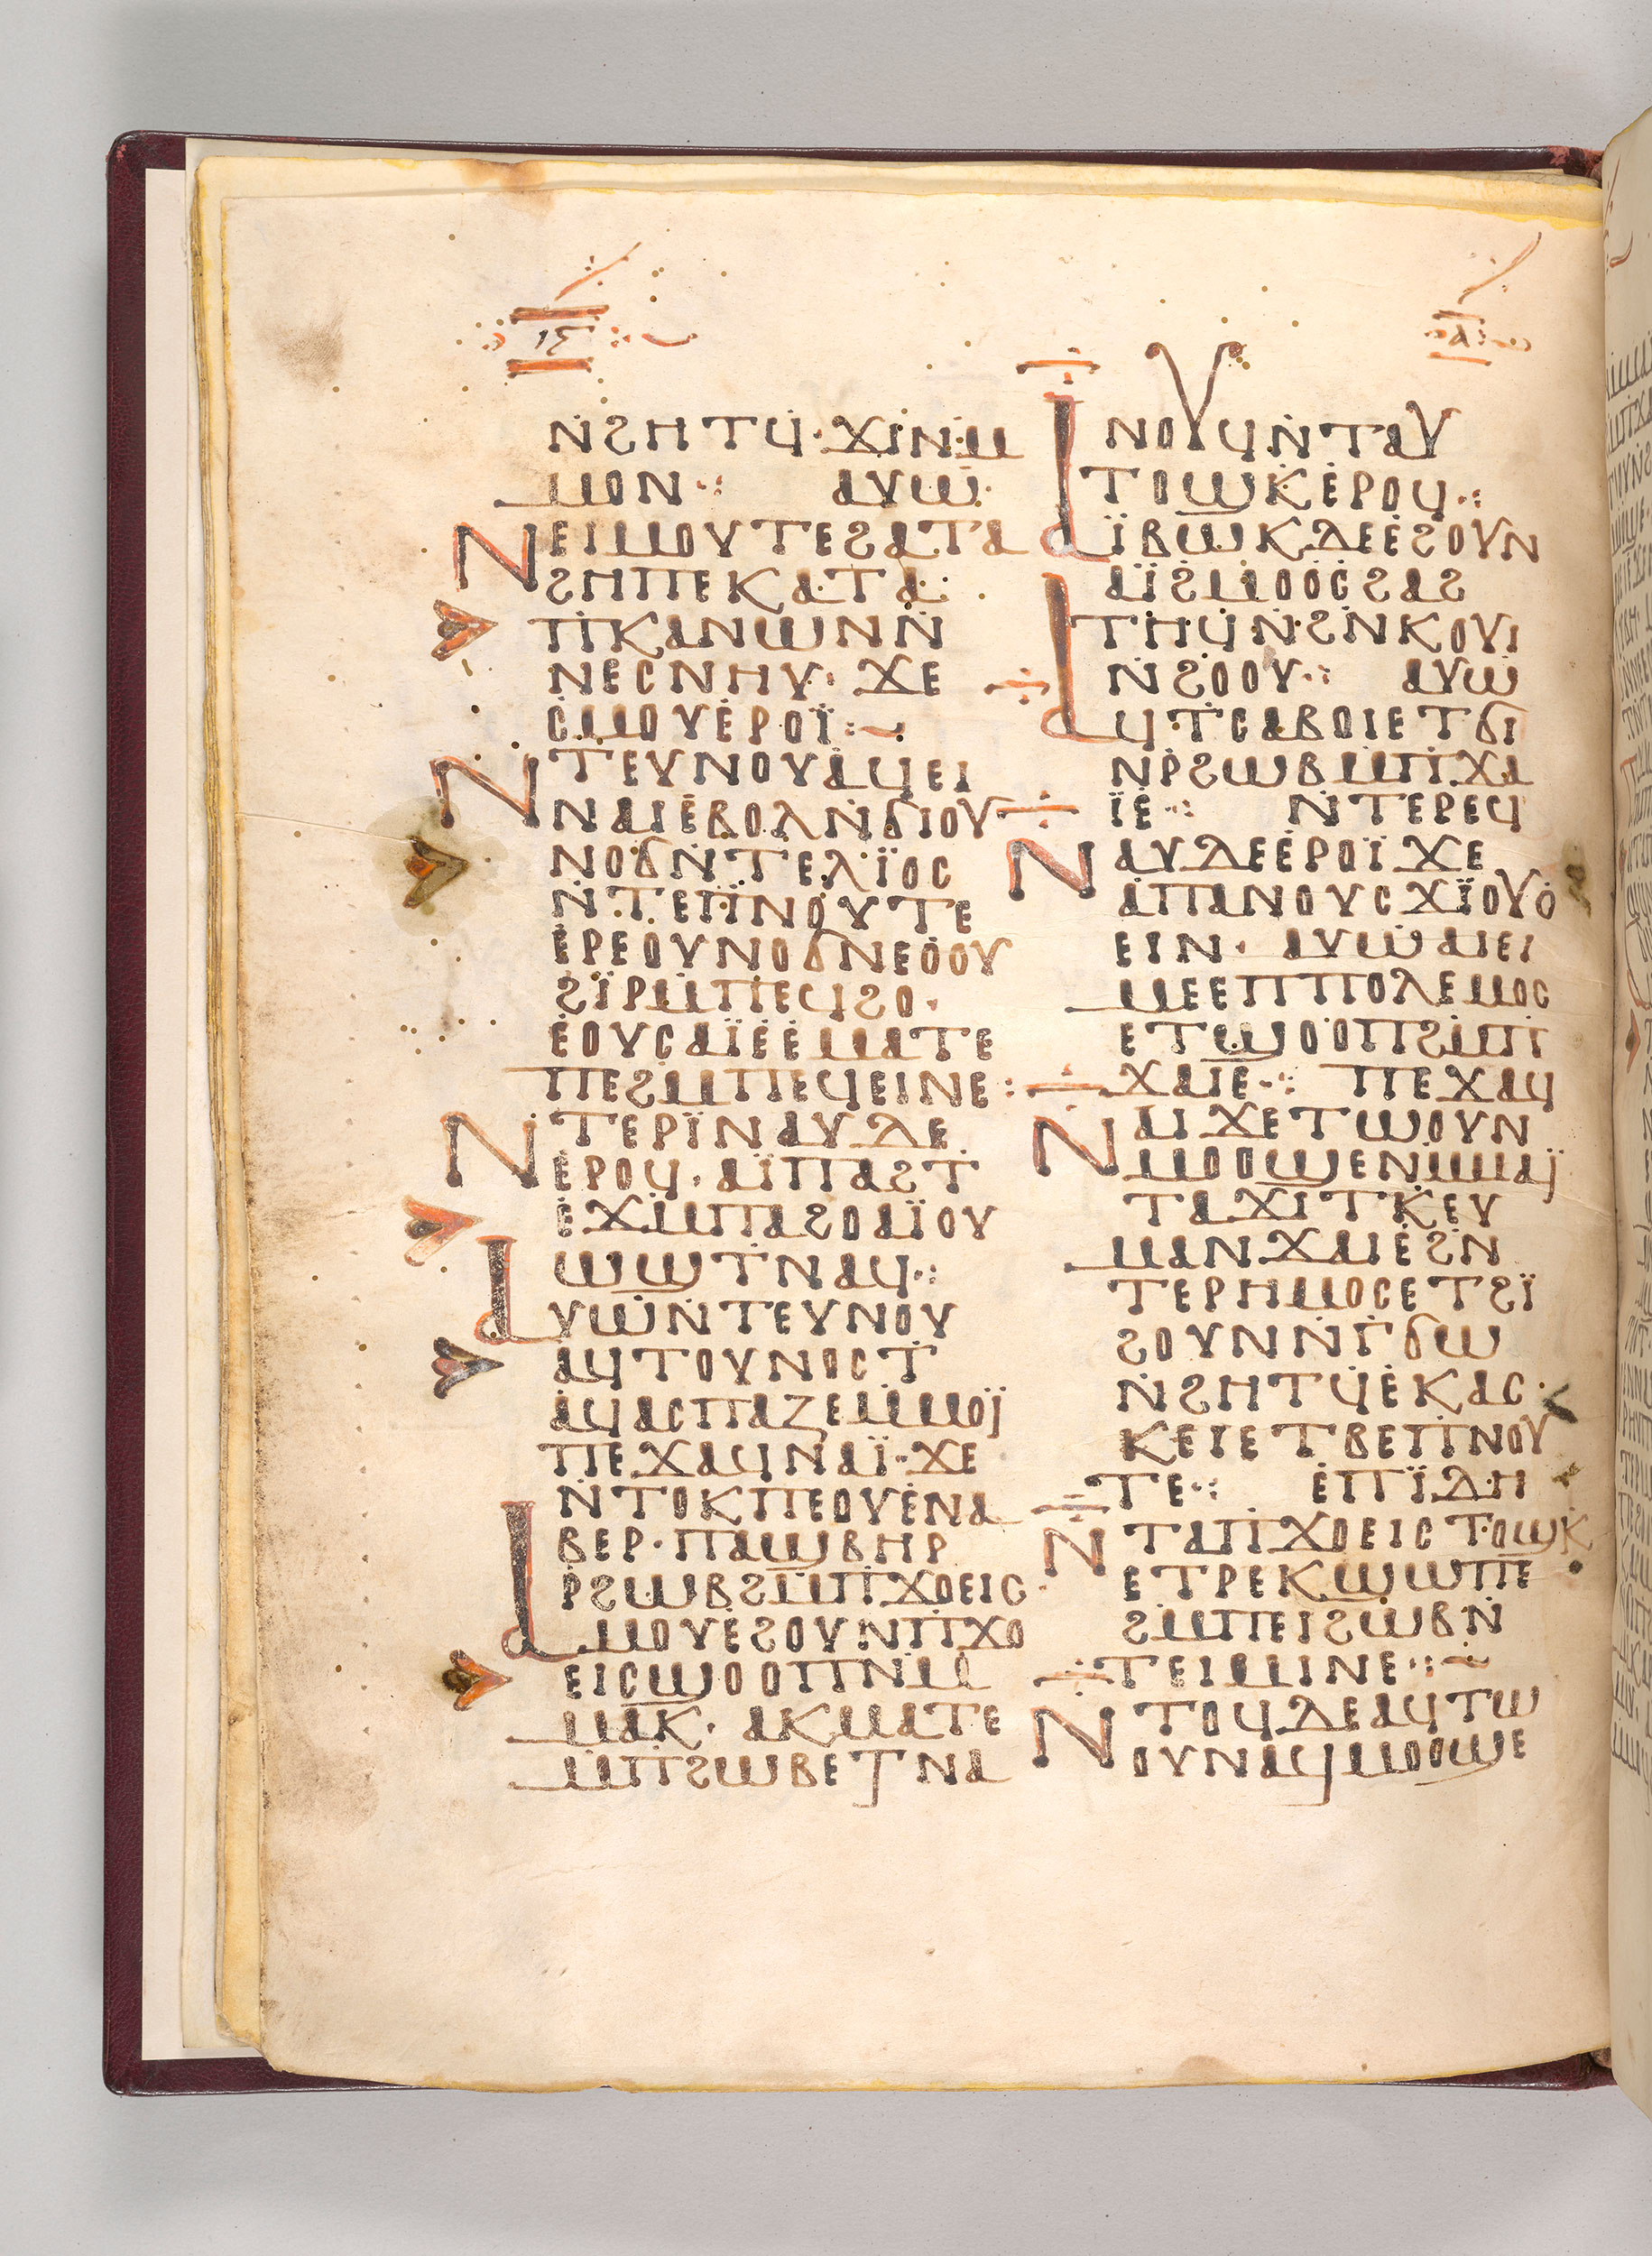 ⲓⲋ
ⲁ
ⲛ̇ϩⲏⲧϥ̇· ϫⲓ̇ⲛ̇ⲙ̇
ⲙⲟⲛ ⲁⲩⲱ
ⲛⲉⲓⲙⲟⲩⲧⲉϩⲁⲧⲁ
ϩⲏⲡⲉⲕⲁⲧⲁ
ⲡ̇ⲕⲁⲛⲱⲛⲛ̇
ⲛⲉⲥⲛⲏⲩ· ϫⲉ
ⲥ̇ⲙⲟⲩⲉ̇ⲣⲟⲓ̈
ⲛⲧⲉⲩⲛⲟⲩⲁϥⲉⲓ
ⲛⲁⲓⲉ̇ⲃⲟⲗⲛ̇ϭⲓⲟⲩ
ⲛⲟϭⲛ̇ⲧⲉⲗⲓ̈ⲟⲥ
ⲛ̇ⲧⲉⲡ̇ⲛⲟⲩⲧⲉ
ⲉ̇ⲣⲉⲟⲩⲛⲟϭⲛⲉⲟ̇ⲟⲩ
ϩⲓ̈ⲣⲙ̇ⲡⲉϥϩⲟ·
ⲉ̇ⲟⲩⲥⲁⲓ̈ⲉ̇ⲉ̇ⲙⲁⲧⲉ
ⲡⲉϩⲙ̇ⲡⲉϥⲉⲓⲛⲉ
ⲛⲧⲉⲣⲓ̈ⲛⲁⲩⲇⲉ
ⲉ̇ⲣⲟϥ· ⲁⲓ̈ⲡⲁϩⲧ̇
ⲉ̇ϫⲙ̇ⲡⲁϩⲟⲁⲓ̈ⲟⲩ
ⲱϣⲧ̇ⲛⲁϥ
ⲁⲩⲱⲛ̇ⲧⲉⲩⲛⲟⲩ
ⲁϥⲧⲟⲩⲛⲟⲥⲧ̇
ⲁϥⲁⲥⲡⲁⲍⲉⲙ̇ⲙⲟⲓ̈
ⲡⲉϫⲁϥⲛⲁⲓ̈· ϫⲉ
ⲛ̇ⲧⲟⲕⲡⲉⲟⲩⲉ̇ⲛⲁ
ⲃⲉⲣ· ⲡⲁϣⲃⲏⲣ
ⲣ̇ϩⲱⲃϩⲙ̇ⲡ̇ϫⲟⲉⲓⲥ·
ⲁⲙⲟⲩⲉ̇ϩⲟⲩⲛⲡ̇ϫⲟ
ⲉⲓⲥϣⲟⲟⲡⲛⲙ̇
ⲙⲁⲕ· ⲁⲕⲙⲁⲧⲉ
ⲙ̇ⲡϩⲱⲃⲉⲧⲛⲁ
ⲛⲟⲩϥⲛ̇ⲧⲁⲩ
ⲧⲟϣⲕⲉ̇ⲣⲟϥ
ⲁⲓ̈ⲃⲱⲕⲇⲉⲉ̇ϩⲟⲩⲛ
ⲁⲓ̈ϩⲙⲟⲟⲥϩⲁϩ
ⲧⲏϥ̇ⲛ̇ϩⲛ̇ⲕⲟⲩⲓ
ⲛ̇ϩⲟⲟⲩ ⲁⲩⲱ
ⲁϥⲧ̇ⲥⲁⲃⲟⲓⲉⲧϭⲓ
ⲛⲣ̇ϩⲱⲃⲙ̇ⲡ̇ϫⲁ
ⲓ̈ⲉ̇ ⲛ̇ⲧⲉⲣⲉϥ
ⲛⲁⲩⲇⲉⲉ̇ⲣⲟⲓ̈ϫⲉ
ⲁⲡⲁⲛⲟⲩⲥϫⲓ̈ⲟⲩⲟ̇
ⲉⲓⲛ· ⲁⲩⲱⲁⲓⲉⲓ
ⲙⲉⲉⲡⲡⲟⲗⲉⲙⲟⲥ
ⲉⲧϣⲟⲟⲡϩⲙ̇ⲡ̇
ϫⲁⲓⲉ ⲡⲉϫⲁϥ
ⲛⲁⲓϫⲉⲧⲱⲟⲩⲛ
ⲙⲟⲟϣⲉⲛⲙⲙⲁⲓ̈
ⲧⲁϫⲓⲧⲕ̇ⲉⲩ
ⲙⲁⲛϫⲁⲓⲉ̇ϩⲛ
ⲧⲉⲣⲏⲙⲟⲥⲉⲧϩⲓ̈
ϩⲟⲩⲛⲛ̇ⲅ̇ϭⲱ
ⲛ̇ϩⲏⲧϥ̇ⲉ̇ⲕⲁⲥ·
ⲕⲉⲓⲉⲧⲃⲉⲡ̇ⲛⲟⲩ
ⲧⲉ ⲉ̇ⲡⲓ̈ⲇⲏ
ⲛ̇ⲧⲁⲡ̇ϫⲟⲉⲓⲥⲧⲟϣⲕ̇
ⲉⲧⲣⲉⲕϣⲱⲡⲉ
ϩⲙ̇ⲡⲉⲓϩⲱⲃⲛ̇
ⲧⲉⲓⲙⲓⲛⲉ
ⲛⲧⲟϥⲇⲉⲁϥⲧⲱ
ⲟⲩⲛⲁϥⲙⲟⲟϣⲉ